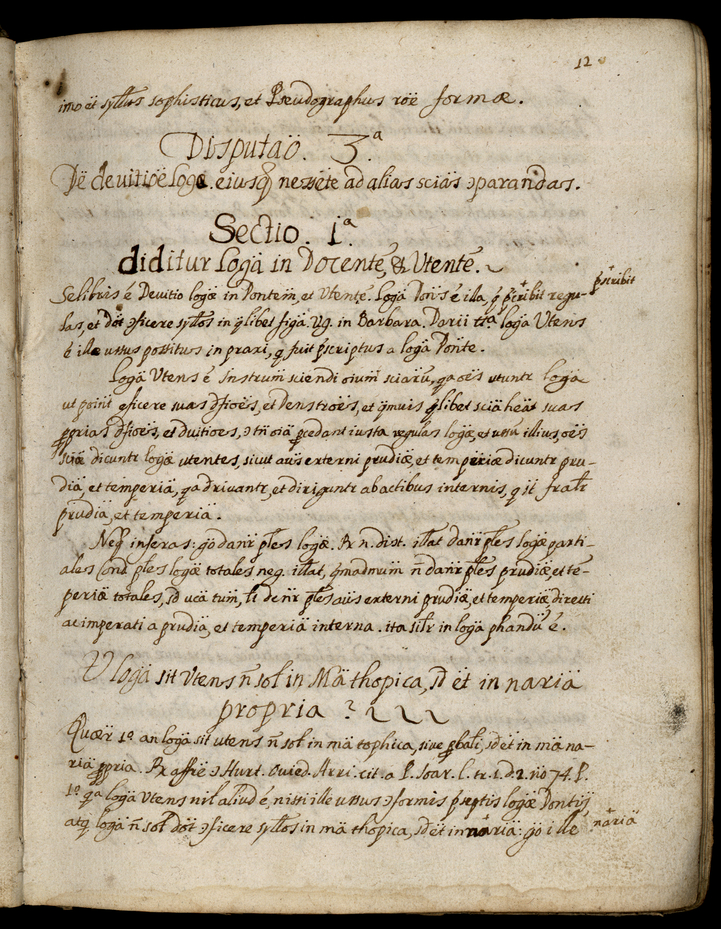 12
imo et̃ syllũs sophisticus, et Pseudographus rõe formæ.
Disputaõ. 3.ª
De devitiõe Logæ. eiusq̃ nessẽte ad alias sciãs ɔparandas.
Sectio. 1ª
diditur Logã in Docentẽ, & Utentẽ.
Selibris ẽ Devitio logæ in Dontem̃, et Utentẽ. Logã Dõns ẽ illa, q̃ p̃scribit regu-
p̃scribit
las, et dõt ɔficere syllũs in q̃libet figã. Vg. in Barbara. Darii logã Utens
ẽ ille ussus possitus in praxi, q̃ fuit p̃scriptus a logã Donte.
Logã Utens ẽ Instrum̃ sciendi oium̃ sciarũ, qa oẽs utuntr logã
ut point eficere suas dfioẽs, et Denstroẽs, et q̃muis q̃libet sciã heãt suas
p̃prias dfioẽs, et duitioẽs, ɔ tñ oiã p̃cedant iusta regulas logæ, et ussũ illius, oẽs
sciæ dicuntr logæ utentes, sicut aũs externi prudiæ, et temperiæ dicuntr pru-
diã, et temperiã, qa drivantr, et diriguntr ab actibus internis, q̃ st̃ fratr
prudiã, et temperiã.
Neq̃ inferas: g̃o danr̃ p̃les logæ. Rr n. dist. illãt danr̃ p̃les logæ parti-
ales cond p̃les logæ totales neg. illãt, q̃madmum̃ ñ danr̃ p̃les prudiæ, et tẽ-
periæ totales, sd̃ ucã tum̃, lt̃ denr̃ p̃les aũs externi prudiæ, et temperiæ, directi
ac imperati a prudiã, et temperiã interna. ita silr̃ in logã phandũ ẽ.
V logã sit Utens ñ sol̃ in Mã thopica, sd̃ et̃ in nariã
propria?
Quær̃ 1º an logã sit utens ñ sol̃ in mã tophica, sive p̃bali, sd̃ et̃ in mã na-
riã p̃pria. Rx affr̃e ɔ Hurt. Ovied. Arri. cit. a P. Soar. l. tr. 1. d. 2. nº 74. P.
1º qa logã Utens nil aliud ẽ, nissi ille ussus ɔformis p̃septis logæ Dontis
atq̃ logã ñ sol̃ dõt ɔficere syllũs in mã thopica, sd̃ et̃ in nãriã: g̃o ille
nãriã